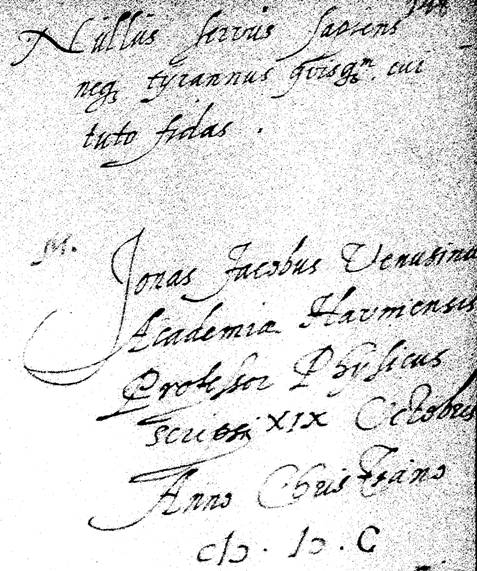 Nullus servus sapiens
neq₃ tyrannus quisq₃m cui
tuto fidas .
M.
Jonas Jacobus Venusinus
Academiæ Haυniensis
Professor Physicus
scripsi XIX Octobris
Anno Christiano
cIɔ . Iɔ . C